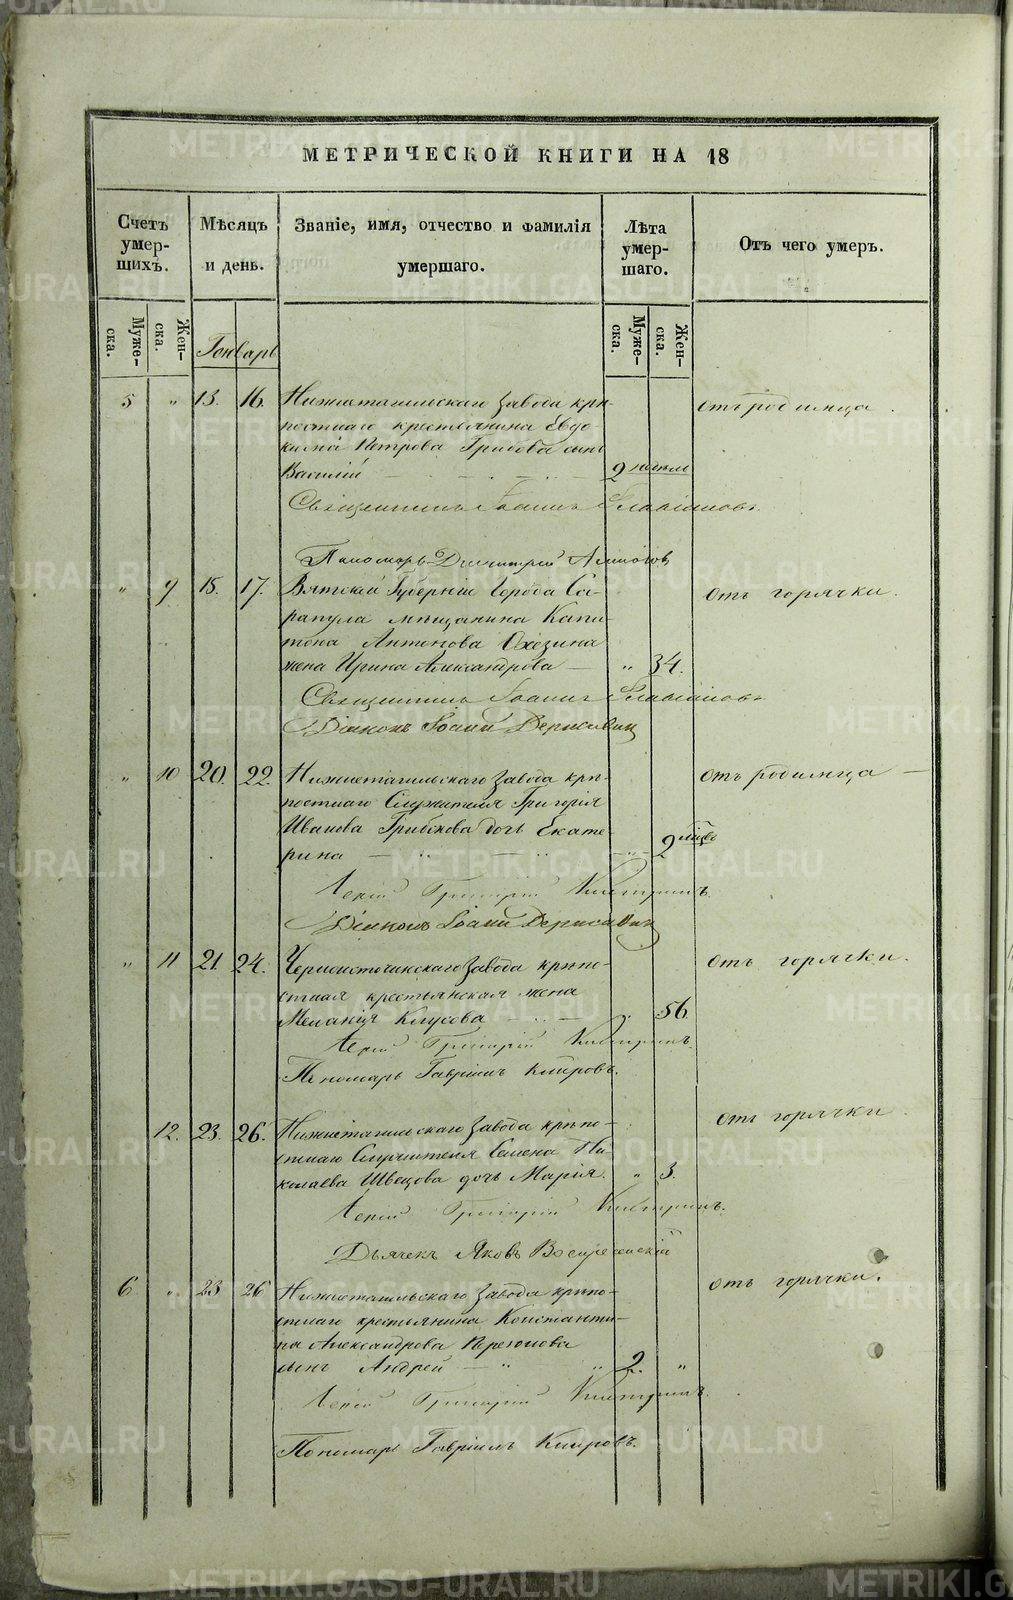 МЕТРИЧЕСКОЙ КНИГИ НА 18
Счетъ умер-шихъ.
Мѣсяцъ и день.
Званіе, имя, отчество и фамилія умершаго.
Лѣта умер-шаго.
Отъ чего умеръ.
Муже-ска.
Жен-ска.
Генварь
Муже-ска.
Жен-ска.
5 " 13. 16. Нижнетагильскаго завода крѣ- отъ родимца.
постнаго крестьянина Евдо-
кима Петрова Грибова сынъ
Василій 2 недели
Священникъ Іоаннъ
Пономарь Димитрий
" 9 15. 17. Вятской Губерніи города Са- отъ горячки.
рапула мѣщанина Капи-
тона Антонова
жена Ирина Александрова — " 34.
Священникъ Іоаннъ
Діаконъ Іоаннъ
" 10 20. 22. Нижнетагильскаго завода крѣ- отъ родимца —
постнаго Служителя Григорія
Иванова дочь Екате-
рина 2 мѣсяц.
Іерей Григорій
Діаконъ Іоаннъ
" 11 21. 24. Черноисточинскаго завода крѣпо- отъ горячки.
стная крестьянская жена
Меланія " 56.
Іерей Григорій
Пономарь Гавріилъ Кипровъ.
12. 23. 26. Нижнетагильскаго завода крѣпо- отъ горячки.
стнаго Служителя Семена Ни-
колаева Швецова дочь Марія. " 3.
Іерей Григорій
Дьячекъ Яковъ Воскресенскій
6 " 23 26 Нижнетагильскаго завода крѣпо- отъ горячки.
стнаго крестьянина Константи-
на Александрова
сынъ Андрей — " " 2. "
Іерей Григорій
Пономарь Гавріилъ Кипровъ.
METRIKI.GASO-URAL.RU